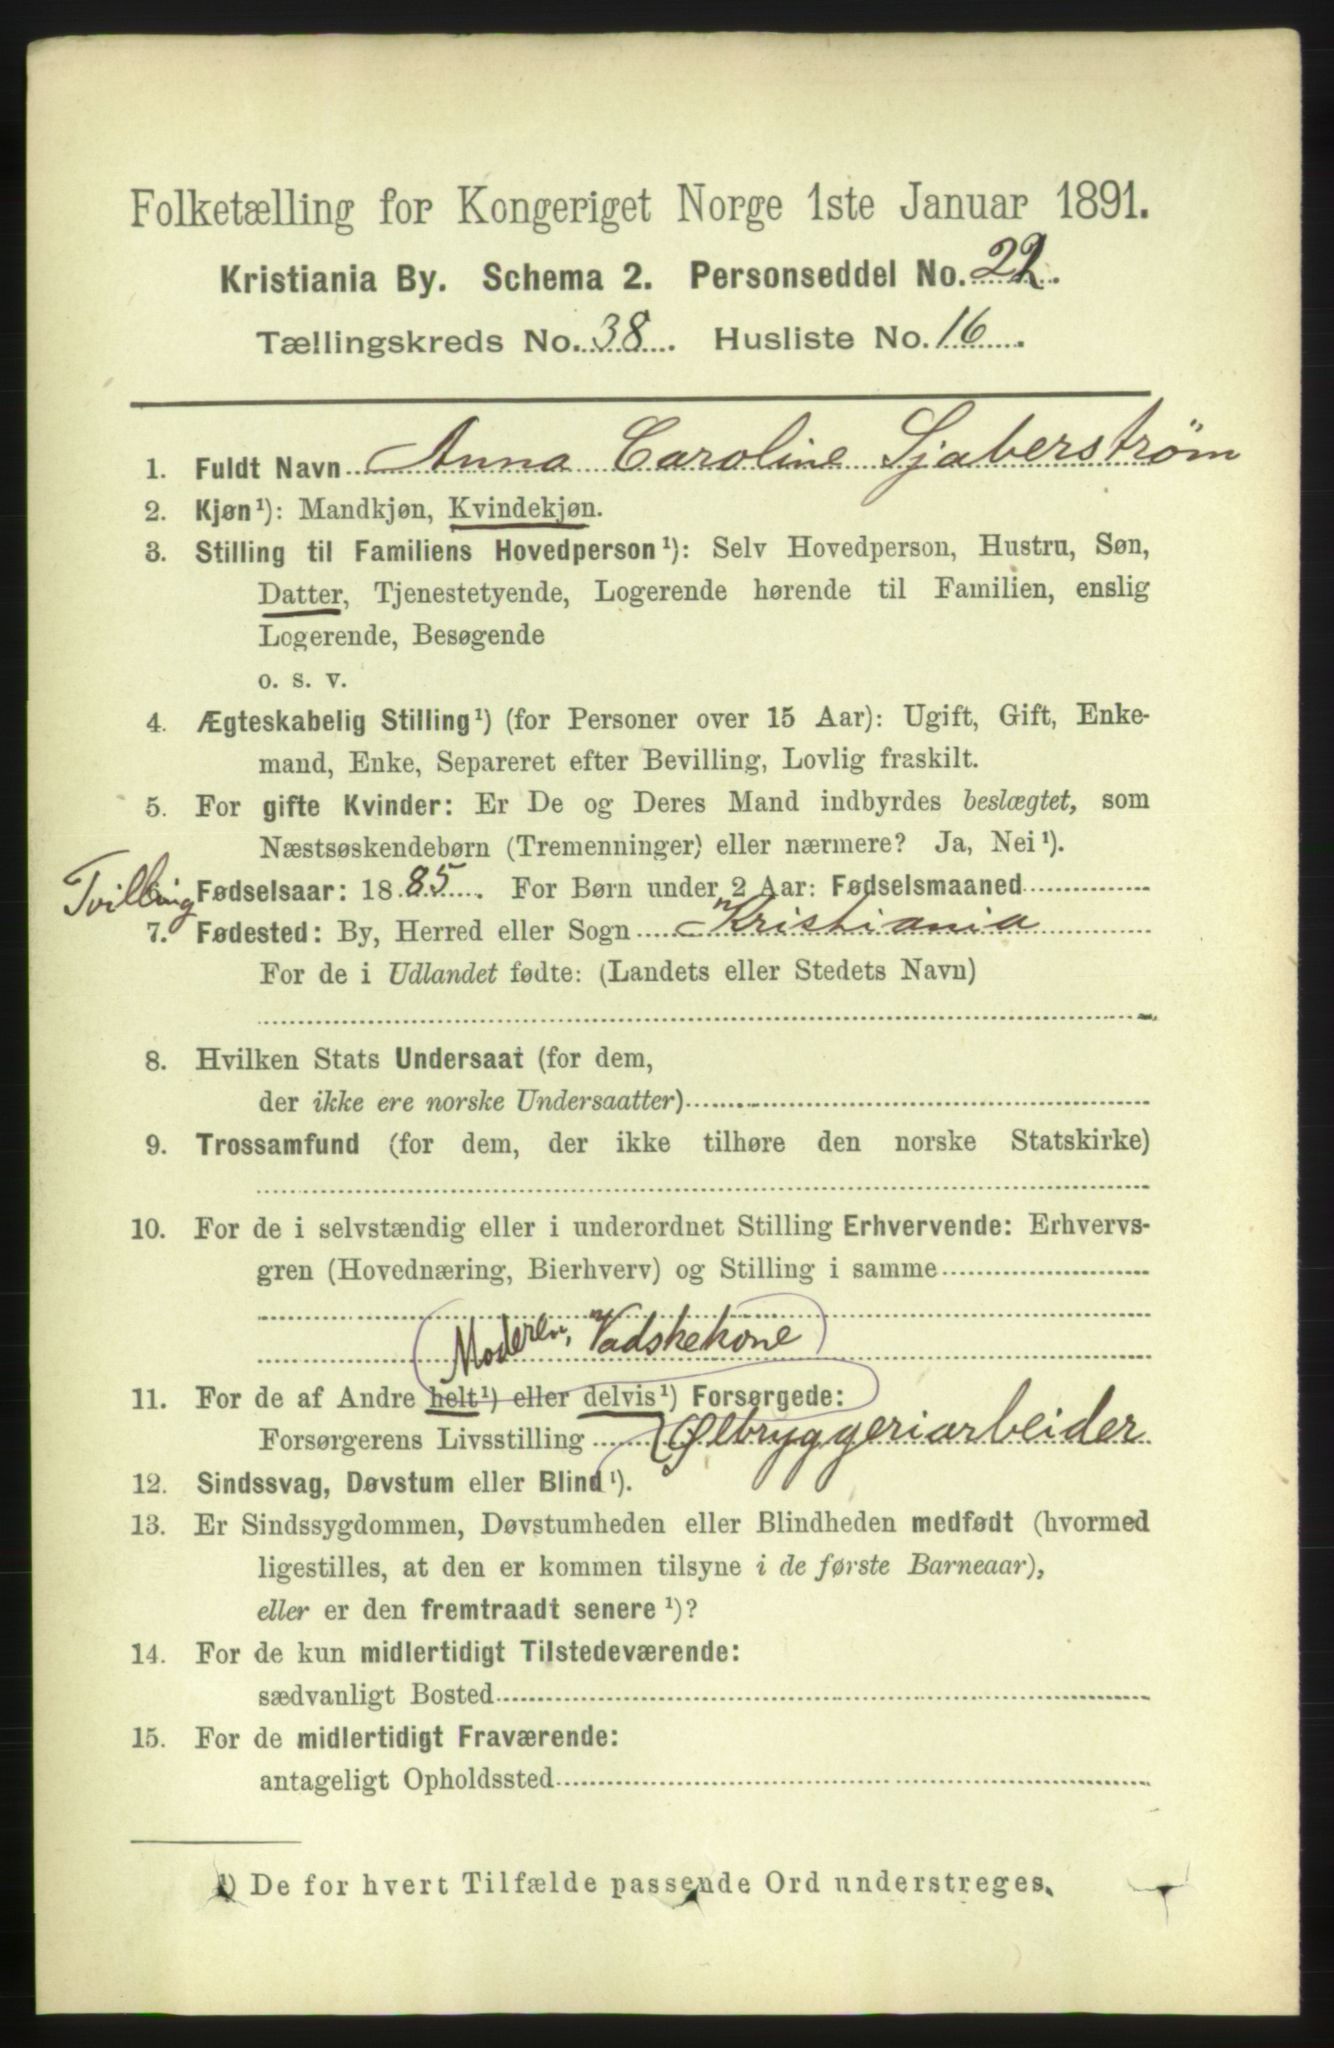 Folketælling for Kongeriget Norge 1ste Januar 1891.
Kristiania By. Schema 2. Personseddel No. 22.
Tællingskreds No. 38. Husliste No. 16.
1. Fuldt Navn Anna Caroline Sjaberstrøm
2. Kjøn¹): Mandkjøn, Kvindekjøn.
3. Stilling til Familiens Hovedperson¹): Selv Hovedperson, Hustru, Søn,
Datter, Tjenestetyende, Logerende hørende til Familien, enslig
Logerende, Besøgende
o. s. v.
4. Ægteskabelig Stilling¹) (for Personer over 15 Aar): Ugift, Gift, Enke-
mand, Enke, Separeret efter Bevilling, Lovlig fraskilt.
5. For gifte Kvinder: Er De og Deres Mand indbyrdes beslægtet, som
Næstsøskendebørn (Tremenninger) eller nærmere? Ja, Nei¹).
Tvilling Fødselsaar: 1885. For Børn under 2 Aar: Fødselsmaaned
7. Fødested: By, Herred eller Sogn Kristiania
For de i Udlandet fødte: (Landets eller Stedets Navn)
8. Hvilken Stats Undersaat (for dem,
der ikke ere norske Undersaatter)
9. Trossamfund (for dem, der ikke tilhøre den norske Statskirke)
10. For de i selvstændig eller i underordnet Stilling Erhvervende: Erhvervs-
gren (Hovednæring, Bierhverv) og Stilling i samme
Moderen, Vadskekone
11. For de af Andre helt¹) eller delvis¹) Forsørgede:
Forsørgerens Livsstilling Ølbryggeriarbeider
12. Sindssvag, Døvstum eller Blind¹).
13. Er Sindssygdommen, Døvstumheden eller Blindheden medfødt (hvormed
ligestilles, at den er kommen tilsyne i de første Barneaar),
eller er den fremtraadt senere¹)?
14. For de kun midlertidigt Tilstedeværende:
sædvanligt Bosted
15. For de midlertidigt Fraværende:
antageligt Opholdssted
¹) De for hvert Tilfælde passende Ord understreges.